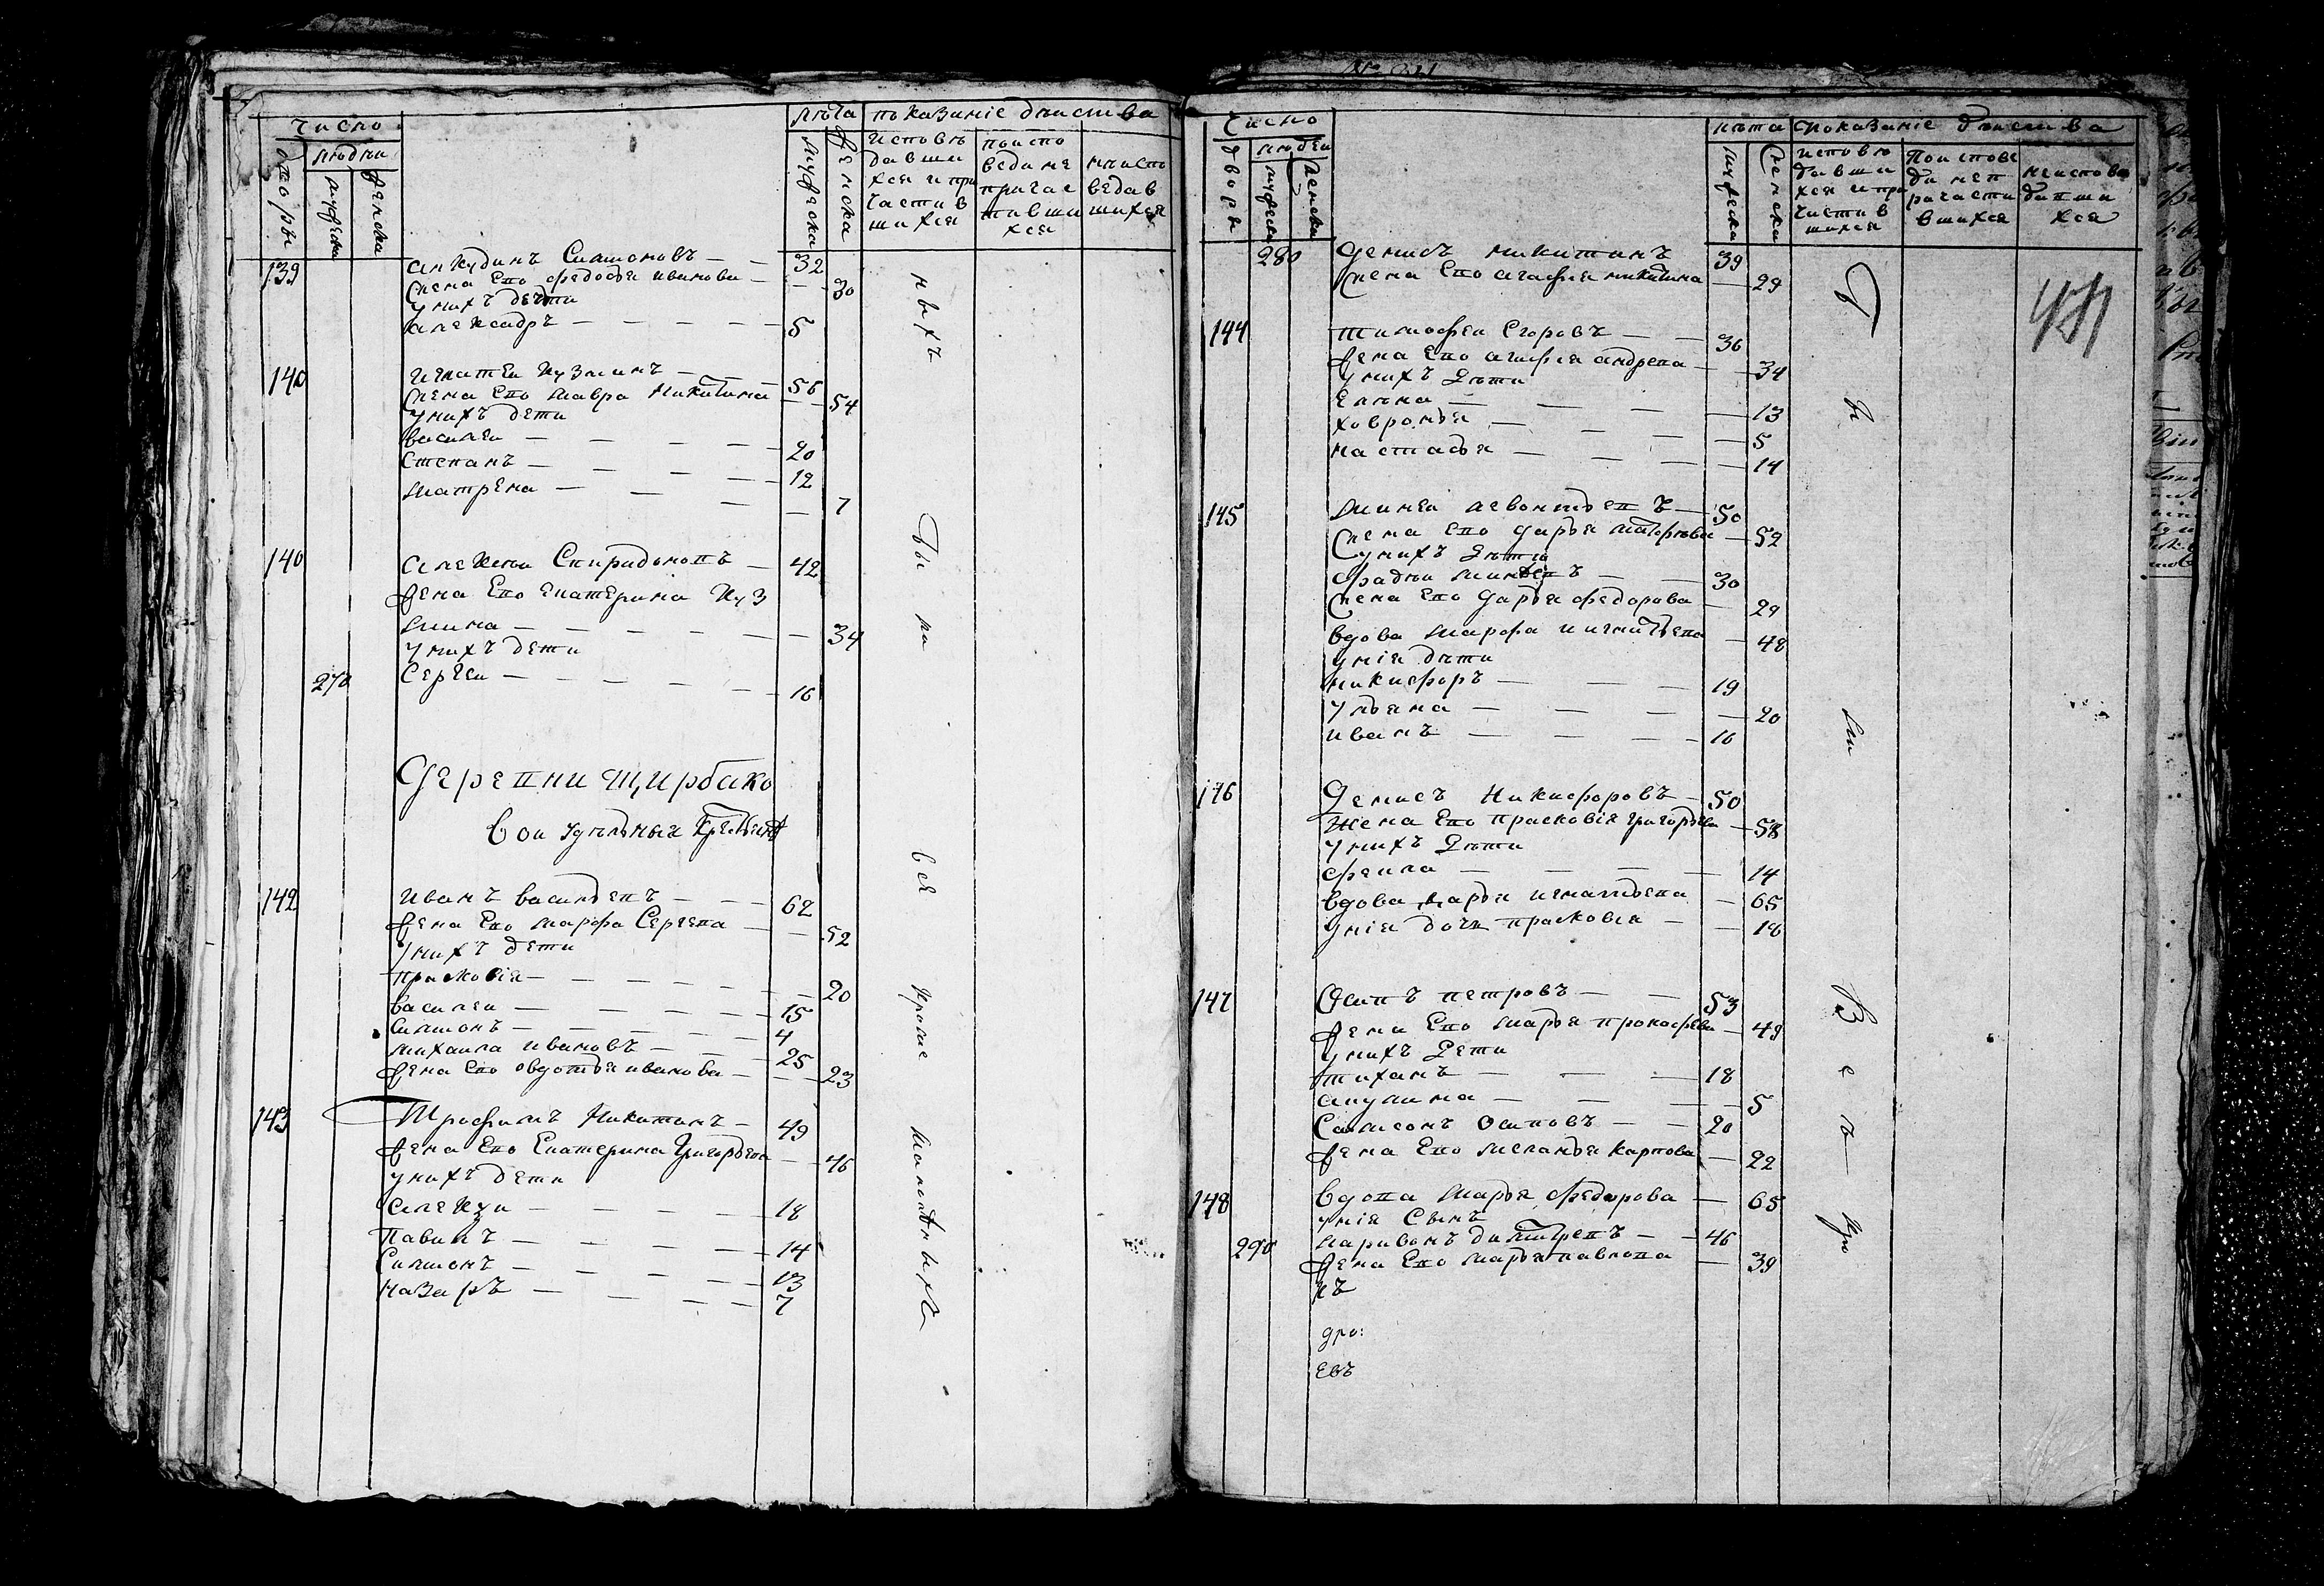 число
людеи
дворы
мужеска
женска
лѣта
мужеска
женска
показание действа
исповѣ
давши
хся и при
части в
шихся
по испо
веди не
причас
тивши
хся
не испо
ведав
шихся
139 анкудинъ Симоновъ — 32
жена Его федосья иванова — 30
у нихъ дети
александръ — 5
140 игнатеи кузминъ — 56
жена Его мавра Никитина — 54
у нихъ дети
василеи — 20
степанъ — 12
матрена — 7
140 алексеи Спиридоновъ — 42
жена Его екатерина куз
мина — 34
у нихъ дети
270 Сергеи — 16
деревни щирбако
вои удельныя крестьяня
142 иванъ васильевъ — 62
жена Его марфа Сергева — 52
у нихъ дети
прасковия — 20
василеи — 15
симонъ — 4
михаила ивановъ — 25
жена Его овдотья иванова — 23
143 Трофимъ Никитинъ — 49
жена Его Екатерина Григорьева — 46
у нихъ дети
алексеи — 18
павилъ — 14
Симонъ — 13
назаръ — 7
все
кроме
число
дворы
людеи
мужеска
женска
лѣта
мужеска
женска
показание действа
исповѣ
давши
хся и при
части в
шихся
по испове
ди не п
ричасти
вшихся
не испове
давши
хся
280 денисъ никитинъ 39
жена Его агафия никитина — 29
144 тимофеи Егоровъ — 36
жена Его агафия андрева — 34
у нихъ дѣти
Елена — 13
ховронья — 5
настасья — 14
145 миней левонтьевъ — 50
жена его дарья — 52
у нихъ дѣти
фадѣи минѣевъ — 30
жена Его дарья федорова — 29
вдова марфа игнатьева — 48
у нія дѣти
никифоръ — 19
ульяна — 20
иванъ — 16
146 денисъ Никифоровъ — 50
Жена Его прасковія григорьева — 58
у нихъ дѣти
фекла — 14
вдова дарья игнатьева — 65
у нія дочь прасковья — 18
147 Осипъ петровъ — 53
жена Его марья прокофева — 49
у нихъ дети
тиханъ — 18
акулина — 5
Самсонъ Осиповъ — 20
жена Его меланья карпова — 22
148 вдова марья федорова — 65
у нія Сынъ
290 ларивонъ дмитревъ — 46
жена Его марья павлова — 39